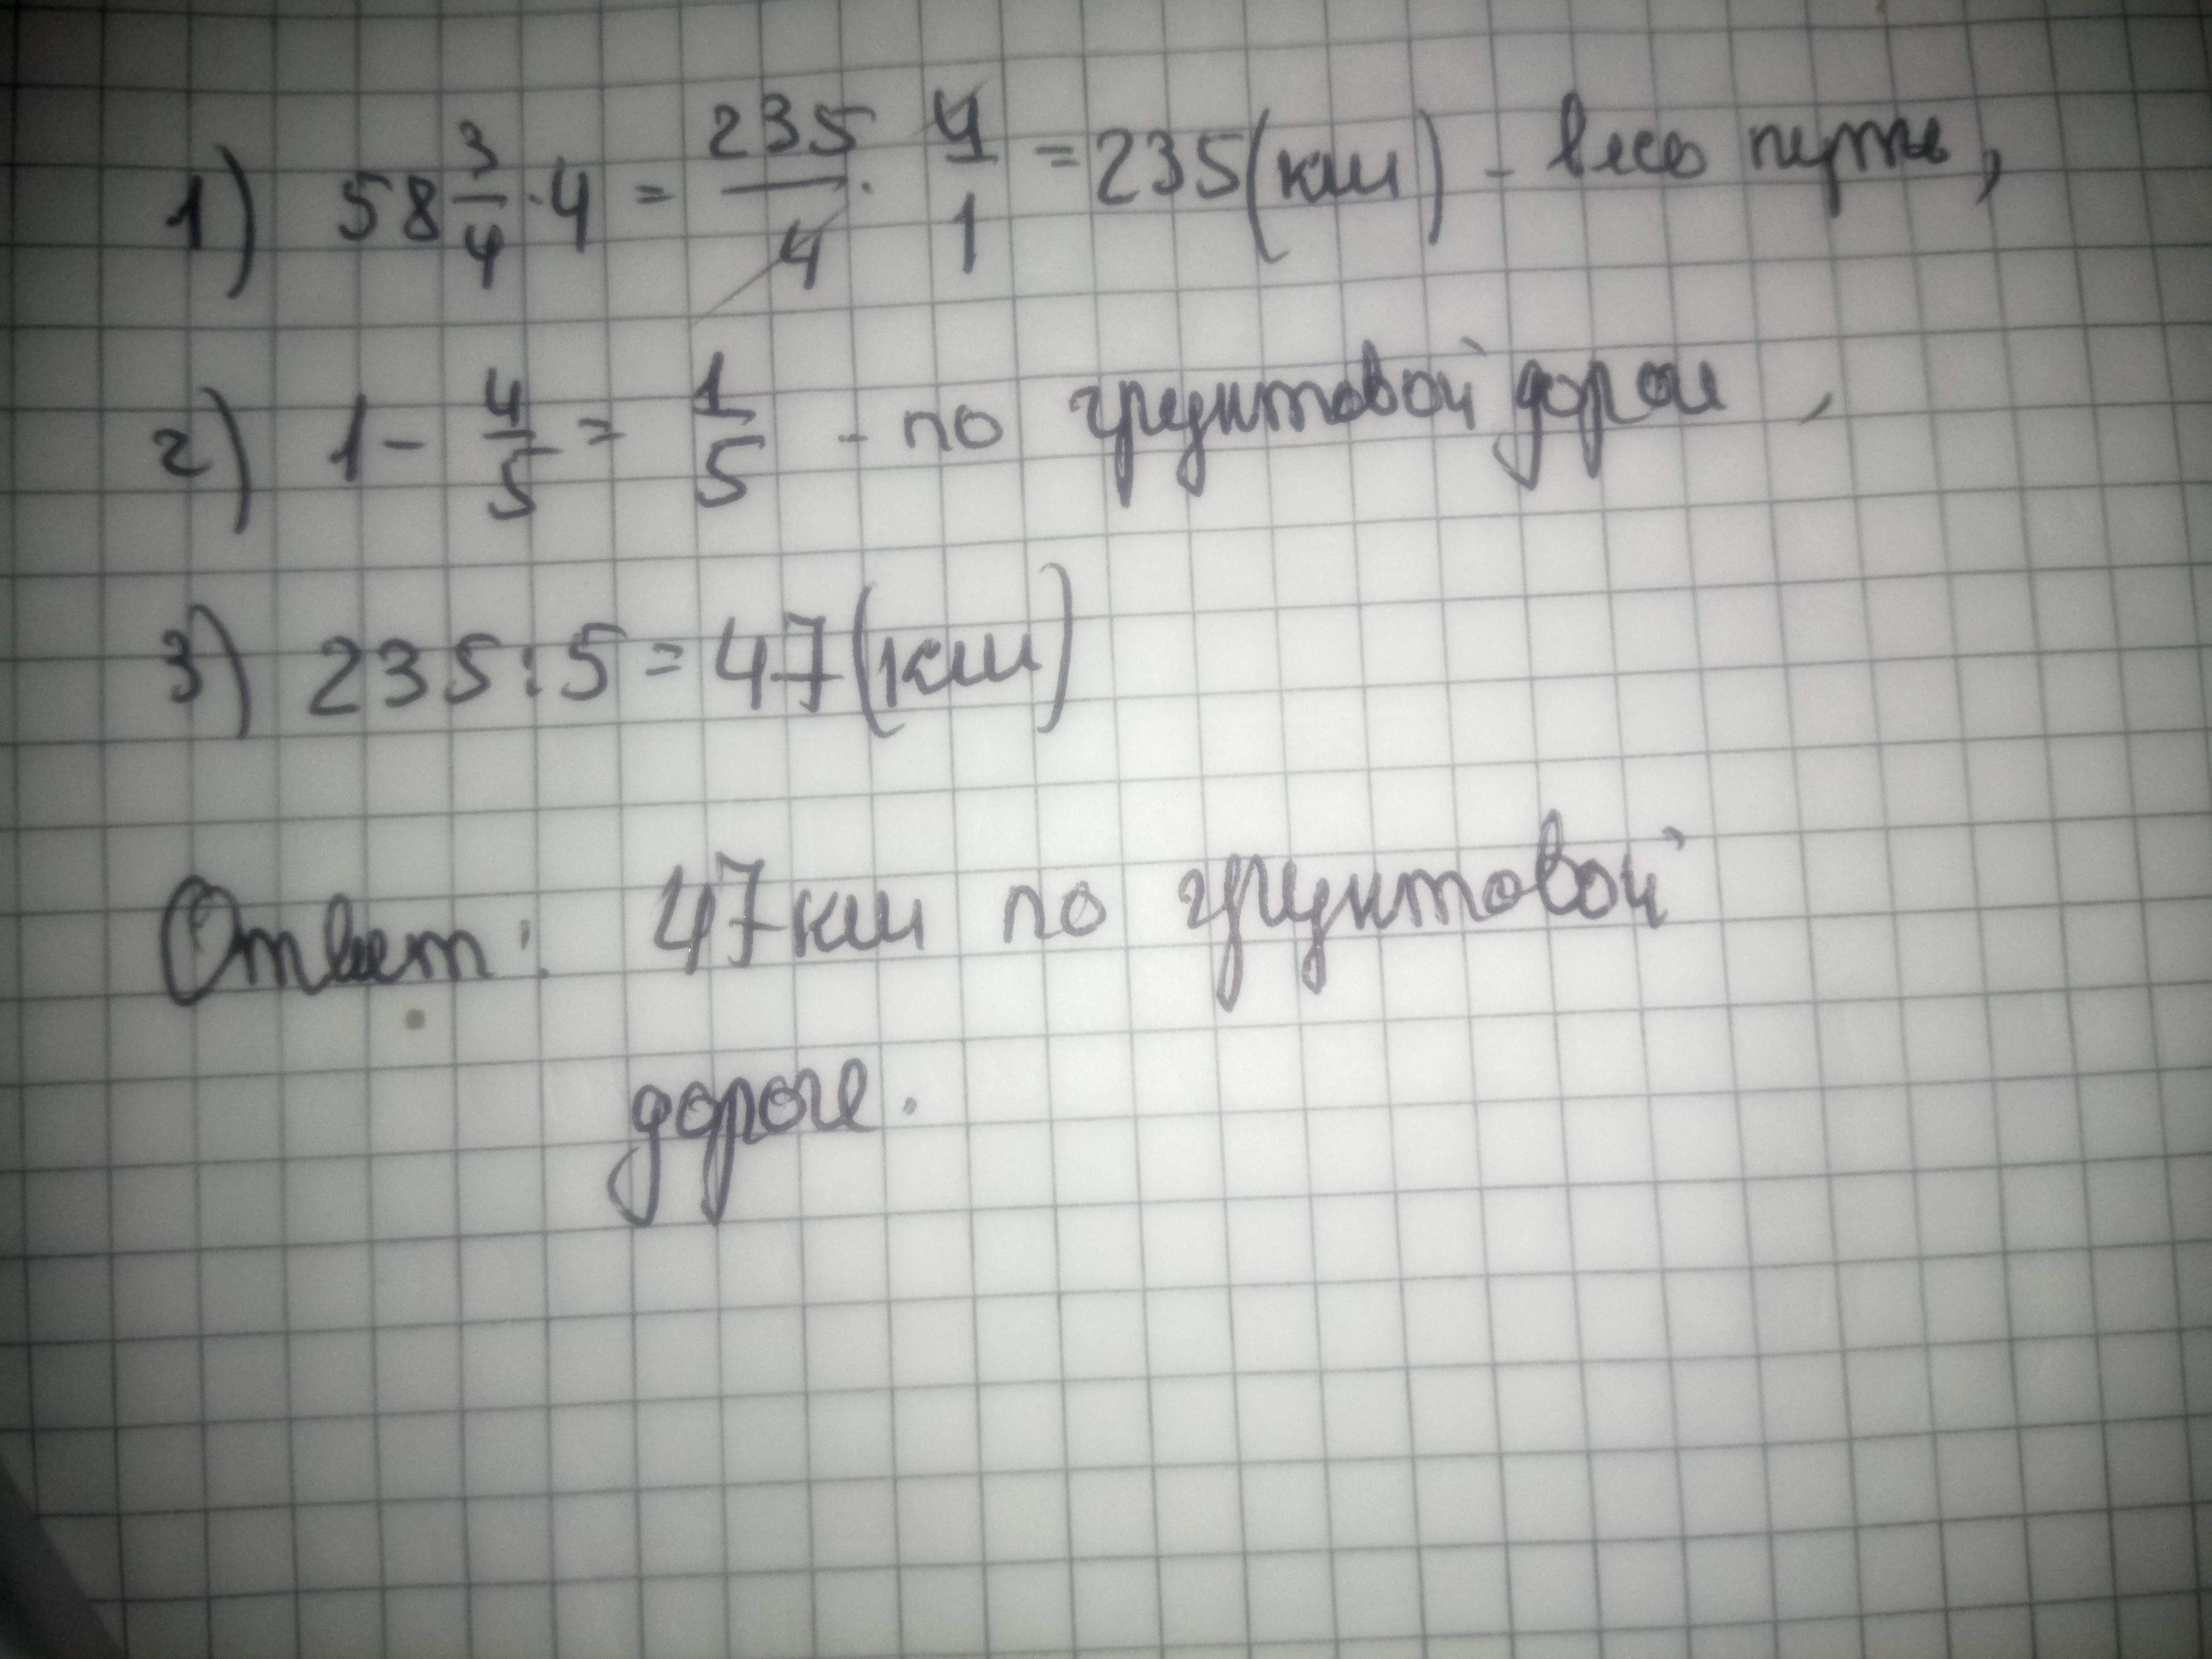 1) 58 3/4 · 4 = 235/4 · 4/1 = 235 (км) - весь путь,
2) 1 - 4/5 = 1/5 - по грунтовой дороге,
3) 235 : 5 = 47 (км)
Ответ: 47 км по грунтовой
дороге.